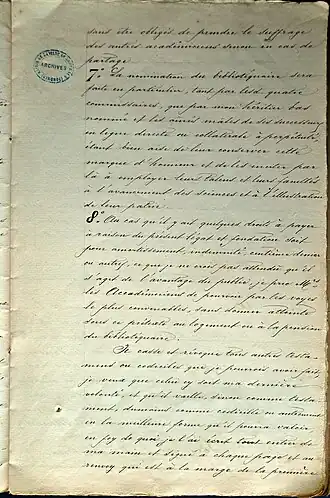 sans être obligés de prendre le suffrage
des autres académiciens sinon en cas de
partage.
ARCHIVES
7.° La nomination du bibliotéquaire sera
faite en particulier, tant par lesd. quatre
commissaires, que par mon héritier bas
nommé et les ainés males de ses successeurs
en ligne directe ou collatérale à perpétuité,
étant bien aise de leur conserver cette
marque d'honneur et de les inviter par
là à employer leurs talens et leurs facultés
à l'avancement des sciences et à l'illustration
de leur patrie.
8.° Au cas qu'il y ait quelques droits à payer
à raison du présent légat et fondation soit
pour amortissement, indemnité, centième denier
ou autres, ce que je ne crois pas attendu qu'il
s'agit de l'avantage du public, je prie Mrs
les Accadémiciens de pourvoir par les voyes
le plus convenables, sans donner atteinte
sous ce prétexte au logement ou à la pension
du bibliotéquaire.
Je casse et révoque tous autres testa-
mens ou codeciles que je pourrois avoir fait,
je veux que celui cy soit ma dernière
volonté, et qu'il vaille, sinon comme testa-
ment, dumoins comme codecille ou autrement
en la meilleure forme qu'il pourra valoir
en foy de quoi je l'ai écrit tout entier de
ma main et signé à chaque page et au
renvoy qui est à la marge de la première